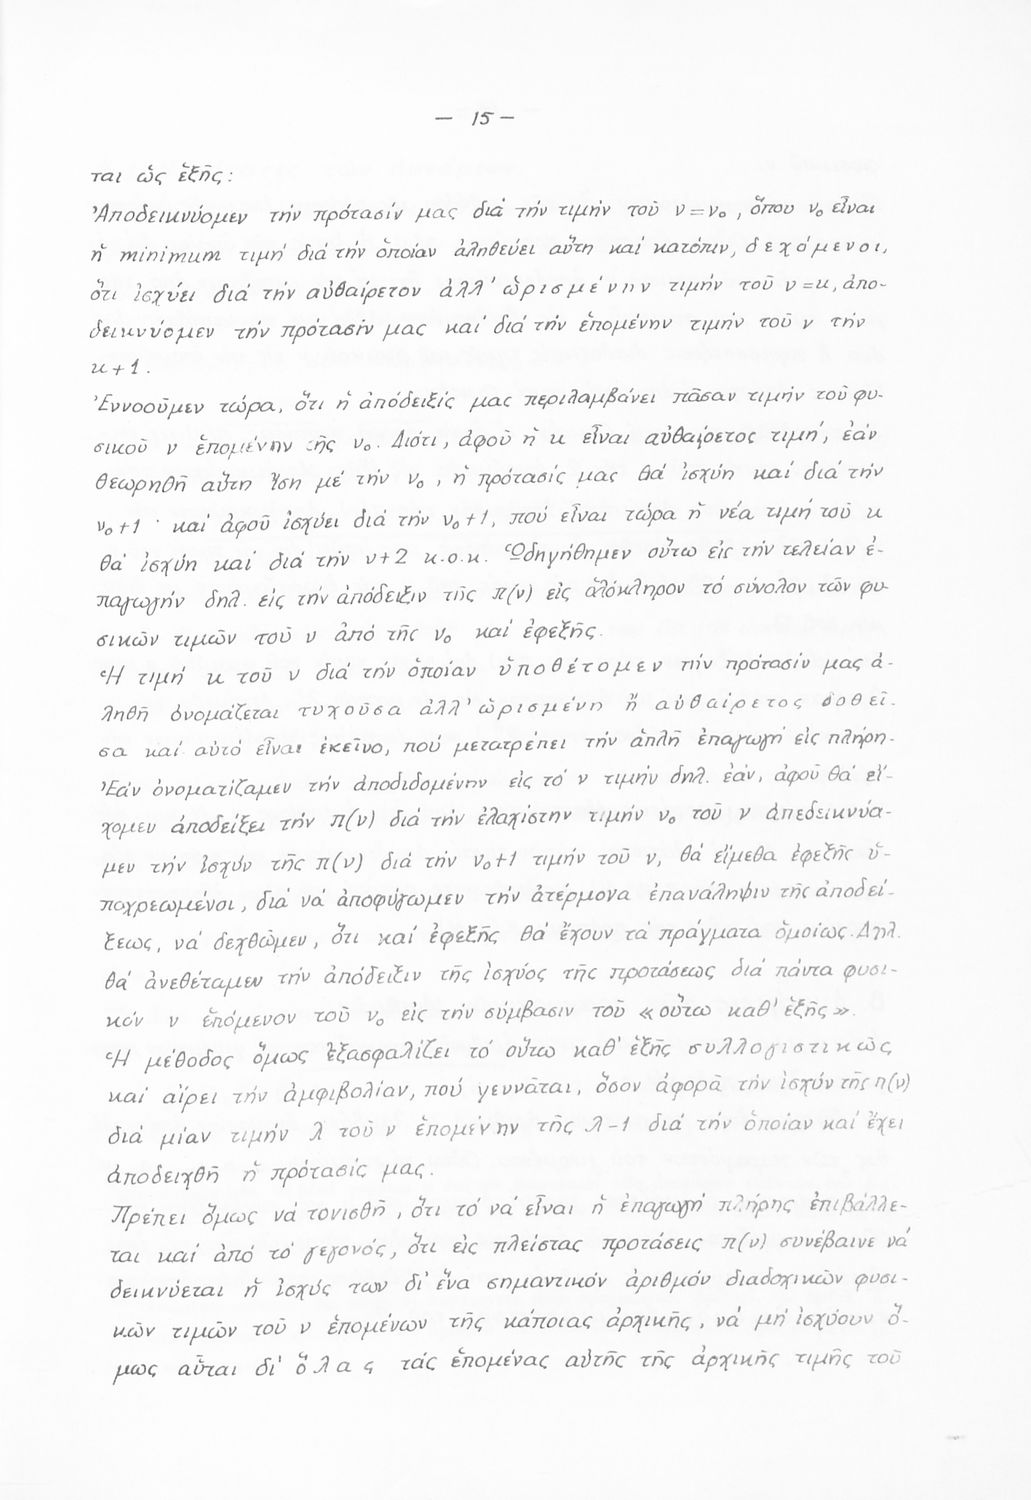 — 15 —
ται ὡς ἑξῆς:
Ἀποδεικνύομεν τήν πρότασίν μας διά τήν τιμήν τοῦ ν=ν₀, ὅπου ν₀ εἶναι
ἡ minimum τιμή διά τήν ὁποίαν ἀληθεύει αὕτη καί κατόπιν, δεχόμενοι,
ὅτι ἰσχύει διά τήν αὐθαίρετον ἀλλ' ὡρισμένην τιμήν τοῦ ν=κ, ἀπο-
δεικνύομεν τήν πρότασίν μας καί διά τήν ἑπομένην τιμήν τοῦ ν τήν
κ+1.
Ἐννοοῦμεν τώρα, ὅτι ἡ ἀπόδειξίς μας περιλαμβάνει πᾶσαν τιμήν τοῦ φυ-
σικοῦ ν ἑπομένην τῆς ν₀. Διότι, ἀφοῦ ἡ κ εἶναι αὐθαίρετος τιμή, ἐάν
θεωρηθῆ αὕτη ἴση μέ τήν ν₀, ἡ πρότασίς μας θά ἰσχύη καί διά τήν
ν₀+1 · καί ἀφοῦ ἰσχύει διά τήν ν₀+1, πού εἶναι τώρα ἡ νέα τιμή τοῦ κ
θά ἰσχύη καί διά τήν ν+2 κ.ο.κ. Ὡδηγήθημεν οὕτω εἰς τήν τελείαν ἐ-
παγωγήν δηλ. εἰς τήν ἀπόδειξιν τῆς π(ν) εἰς ὁλόκληρον τό σύνολον τῶν φυ-
σικῶν τιμῶν τοῦ ν ἀπό τῆς ν₀ καί ἐφεξῆς.
Ἡ τιμή κ τοῦ ν διά τήν ὁποίαν ὑποθέτομεν τήν πρότασίν μας ἀ-
ληθῆ ὀνομάζεται τυχοῦσα ἀλλ' ὡρισμένη ἤ αὐθαίρετος δοθεῖ-
σα καί αὐτό εἶναι ἐκεῖνο, πού μετατρέπει τήν ἁπλῆ ἐπαγωγή εἰς πλήρη.
Ἐάν ὀνοματίζαμεν τήν ἀποδιδομένην εἰς τό ν τιμήν δηλ. ἐάν, ἀφοῦ θά εἴ-
χομεν ἀποδείξει τήν π(ν) διά τήν ἐλαχίστην τιμήν ν₀ τοῦ ν ἀπεδεικνύα-
μεν τήν ἰσχύν τῆς π(ν) διά τήν ν₀+1 τιμήν τοῦ ν, θά εἴμεθα ἐφεξῆς ὑ-
ποχρεωμένοι, διά νά ἀποφύγωμεν τήν ἀτέρμονα ἐπανάληψιν τῆς ἀποδεί-
ξεως, νά δεχθῶμεν, ὅτι καί ἐφεξῆς θά ἔχουν τά πράγματα ὁμοίως. Δηλ.
θά ἀνεθέταμεν τήν ἀπόδειξιν τῆς ἰσχύος τῆς προτάσεως διά πάντα φυσι-
κόν ν ἑπόμενον τοῦ ν₀ εἰς τήν σύμβασιν τοῦ «οὕτω καθ' ἑξῆς».
Ἡ μέθοδος ὅμως ἐξασφαλίζει τό οὕτω καθ' ἑξῆς συλλογιστικῶς
καί αἴρει τήν ἀμφιβολίαν, πού γεννᾶται, ὅσον ἀφορᾶ τήν ἰσχύν τῆς π(ν)
διά μίαν τιμήν λ τοῦ ν ἑπομένην τῆς λ-1 διά τήν ὁποίαν καί ἔχει
ἀποδειχθῆ ἡ πρότασίς μας.
Πρέπει ὅμως νά τονισθῆ, ὅτι τό νά εἶναι ἡ ἐπαγωγή πλήρης ἐπιβάλλε-
ται καί ἀπό τό γεγονός, ὅτι εἰς πλείστας προτάσεις π(ν) συνέβαινε νά
δεικνύεται ἡ ἰσχύς των δι' ἕνα σημαντικόν ἀριθμόν διαδοχικῶν φυσι-
κῶν τιμῶν τοῦ ν ἑπομένων τῆς κάποιας ἀρχικῆς, νά μή ἰσχύουν ὅ-
μως αὗται δι' ὅλας τάς ἑπομένας αὐτῆς τῆς ἀρχικῆς τιμῆς τοῦ